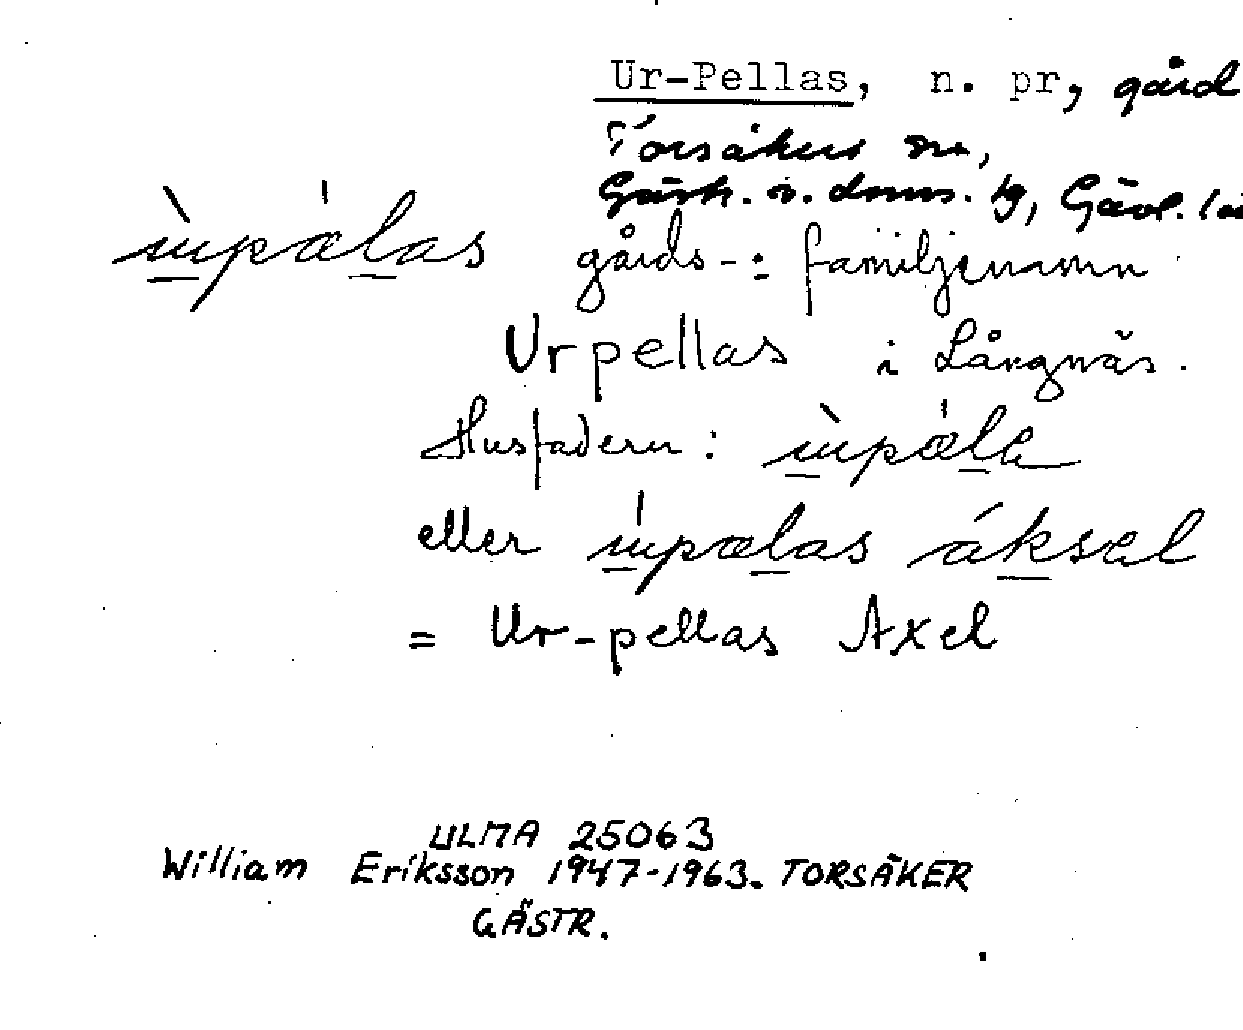 Ur-Pellas, n. pr, gård
Torsåkers sn,
Gästr. ö. doms. tg, Gävl. lä
gårds- : familjenamn
Urpellas i Långnäs.
Husfadern:
eller
= Ur-pellas Axel
ULMA 25063
William Eriksson 1947-1963. TORSÅKER
GÄSTR.